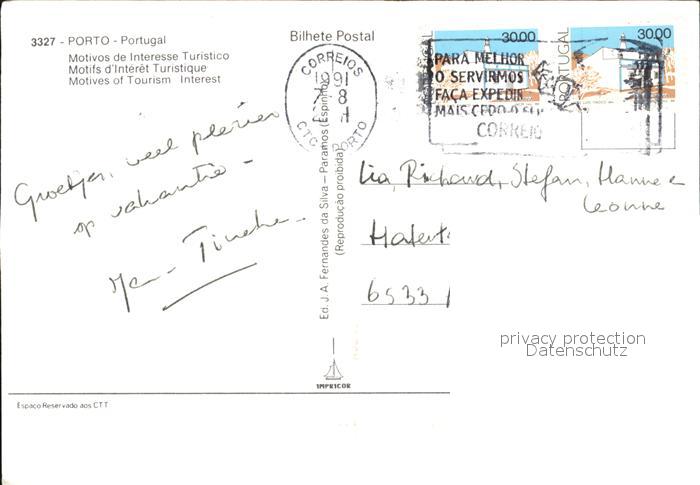 3327 - PORTO - Portugal
Motivos de Interesse Turístico
Motifs d'Intérêt Turistique
Motives of Tourism Interest
Bilhete Postal
CORREIOS
1991
CTC PORTO
PARA MELHOR
O SERVIRMOS
FAÇA EXPEDIR
MAIS CEDO O SEU
CORREIO
PORTUGAL 30.00
PORTUGAL 30.00
Groetjes, veel plezier
op vakantie -
Tineke
Ed. J. A. Fernandes da Silva - Paramos (Espinho)
(Reprodução proibida)
Lia, Richard, Stefan, Hanne
Leonne
6533
privacy protection
Datenschutz
IMPRICOR
Espaço Reservado aos CTT